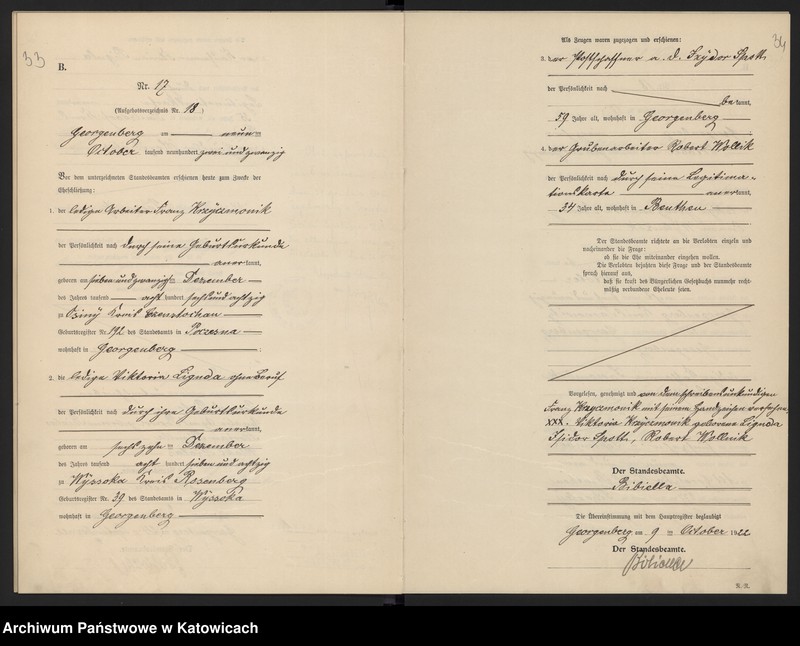 33
B.
Nr. 17
(Aufgebotsverzeichnis Nr. 18)
Georgenberg am neun
October tausend neunhundert zwei und zwanzig
Vor dem unterzeichneten Standesbeamten erschienen heute zum Zwecke der
Eheschließung:
1. der ledige Arbeiter Franz Krzyczmonik
der Persönlichkeit nach durch seine Geburtsurkunde
anerkannt,
geboren am sieben und zwanzig Dezember
des Jahres tausend acht hundert sechs und achtzig
zu Osiny Kreis Czenstochau
Geburtsregister Nr. 192 des Standesamts in Poczesna
wohnhaft in Georgenberg ;
2. die ledige Viktoria Lignda ohne Beruf
der Persönlichkeit nach durch ihre Geburtsurkunde
anerkannt,
geboren am sechszehn Dezember
des Jahres tausend acht hundert sieben und achtzig
zu Wyssoka Kreis Rosenberg
Geburtsregister Nr. 39 des Standesamts in Wyssoka
wohnhaft in Georgenberg
34
Als Zeugen waren zugezogen und erschienen:
3. der Postschaffner a. D. Isydor Spott
der Persönlichkeit nach
bekannt,
59 Jahre alt, wohnhaft in Georgenberg
4. der Grubenarbeiter Robert Wollik
der Persönlichkeit nach durch seine Legitima-
tionskarte anerkannt,
34 Jahre alt, wohnhaft in Beuthen
Der Standesbeamte richtete an die Verlobten einzeln und
nacheinander die Frage:
ob sie die Ehe miteinander eingehen wollen.
Die Verlobten bejahten diese Frage und der Standesbeamte
sprach hierauf aus,
daß sie kraft des Bürgerlichen Gesetzbuchs nunmehr recht-
mäßig verbundene Eheleute seien.
Vorgelesen, genehmigt und von dem schreibensunkundigen
Franz Krzyczmonik mit seinem Handzeichen versehen,
XXX. Viktoria Krzyczmonik geborene Lignda
Isidor Spott, Robert Wollnik
Der Standesbeamte.
Bibiella
Die Übereinstimmung mit dem Hauptregister beglaubigt
Georgenberg am 9 October 1922
Der Standesbeamte.
Bibiella
R.-R.
Archiwum Państwowe w Katowicach